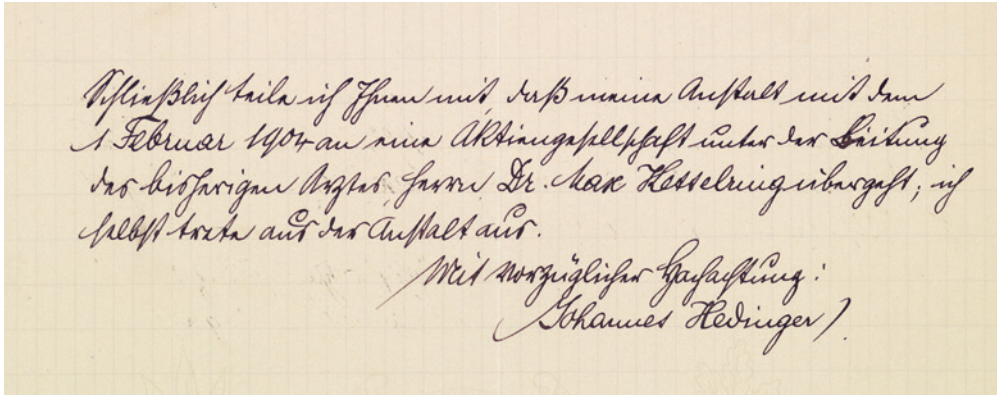 Schließlich teile ich Ihnen mit, daß meine Anstalt mit dem
1 Februar 1904 an eine Aktiengesellschaft unter der Leitung
des bisherigen Arztes, Herrn Dr. Max Hesselring übergeht; ich
selbst trete aus der Anstalt aus.
Mit vorzüglicher Hochachtung:
Johannes Hedinger